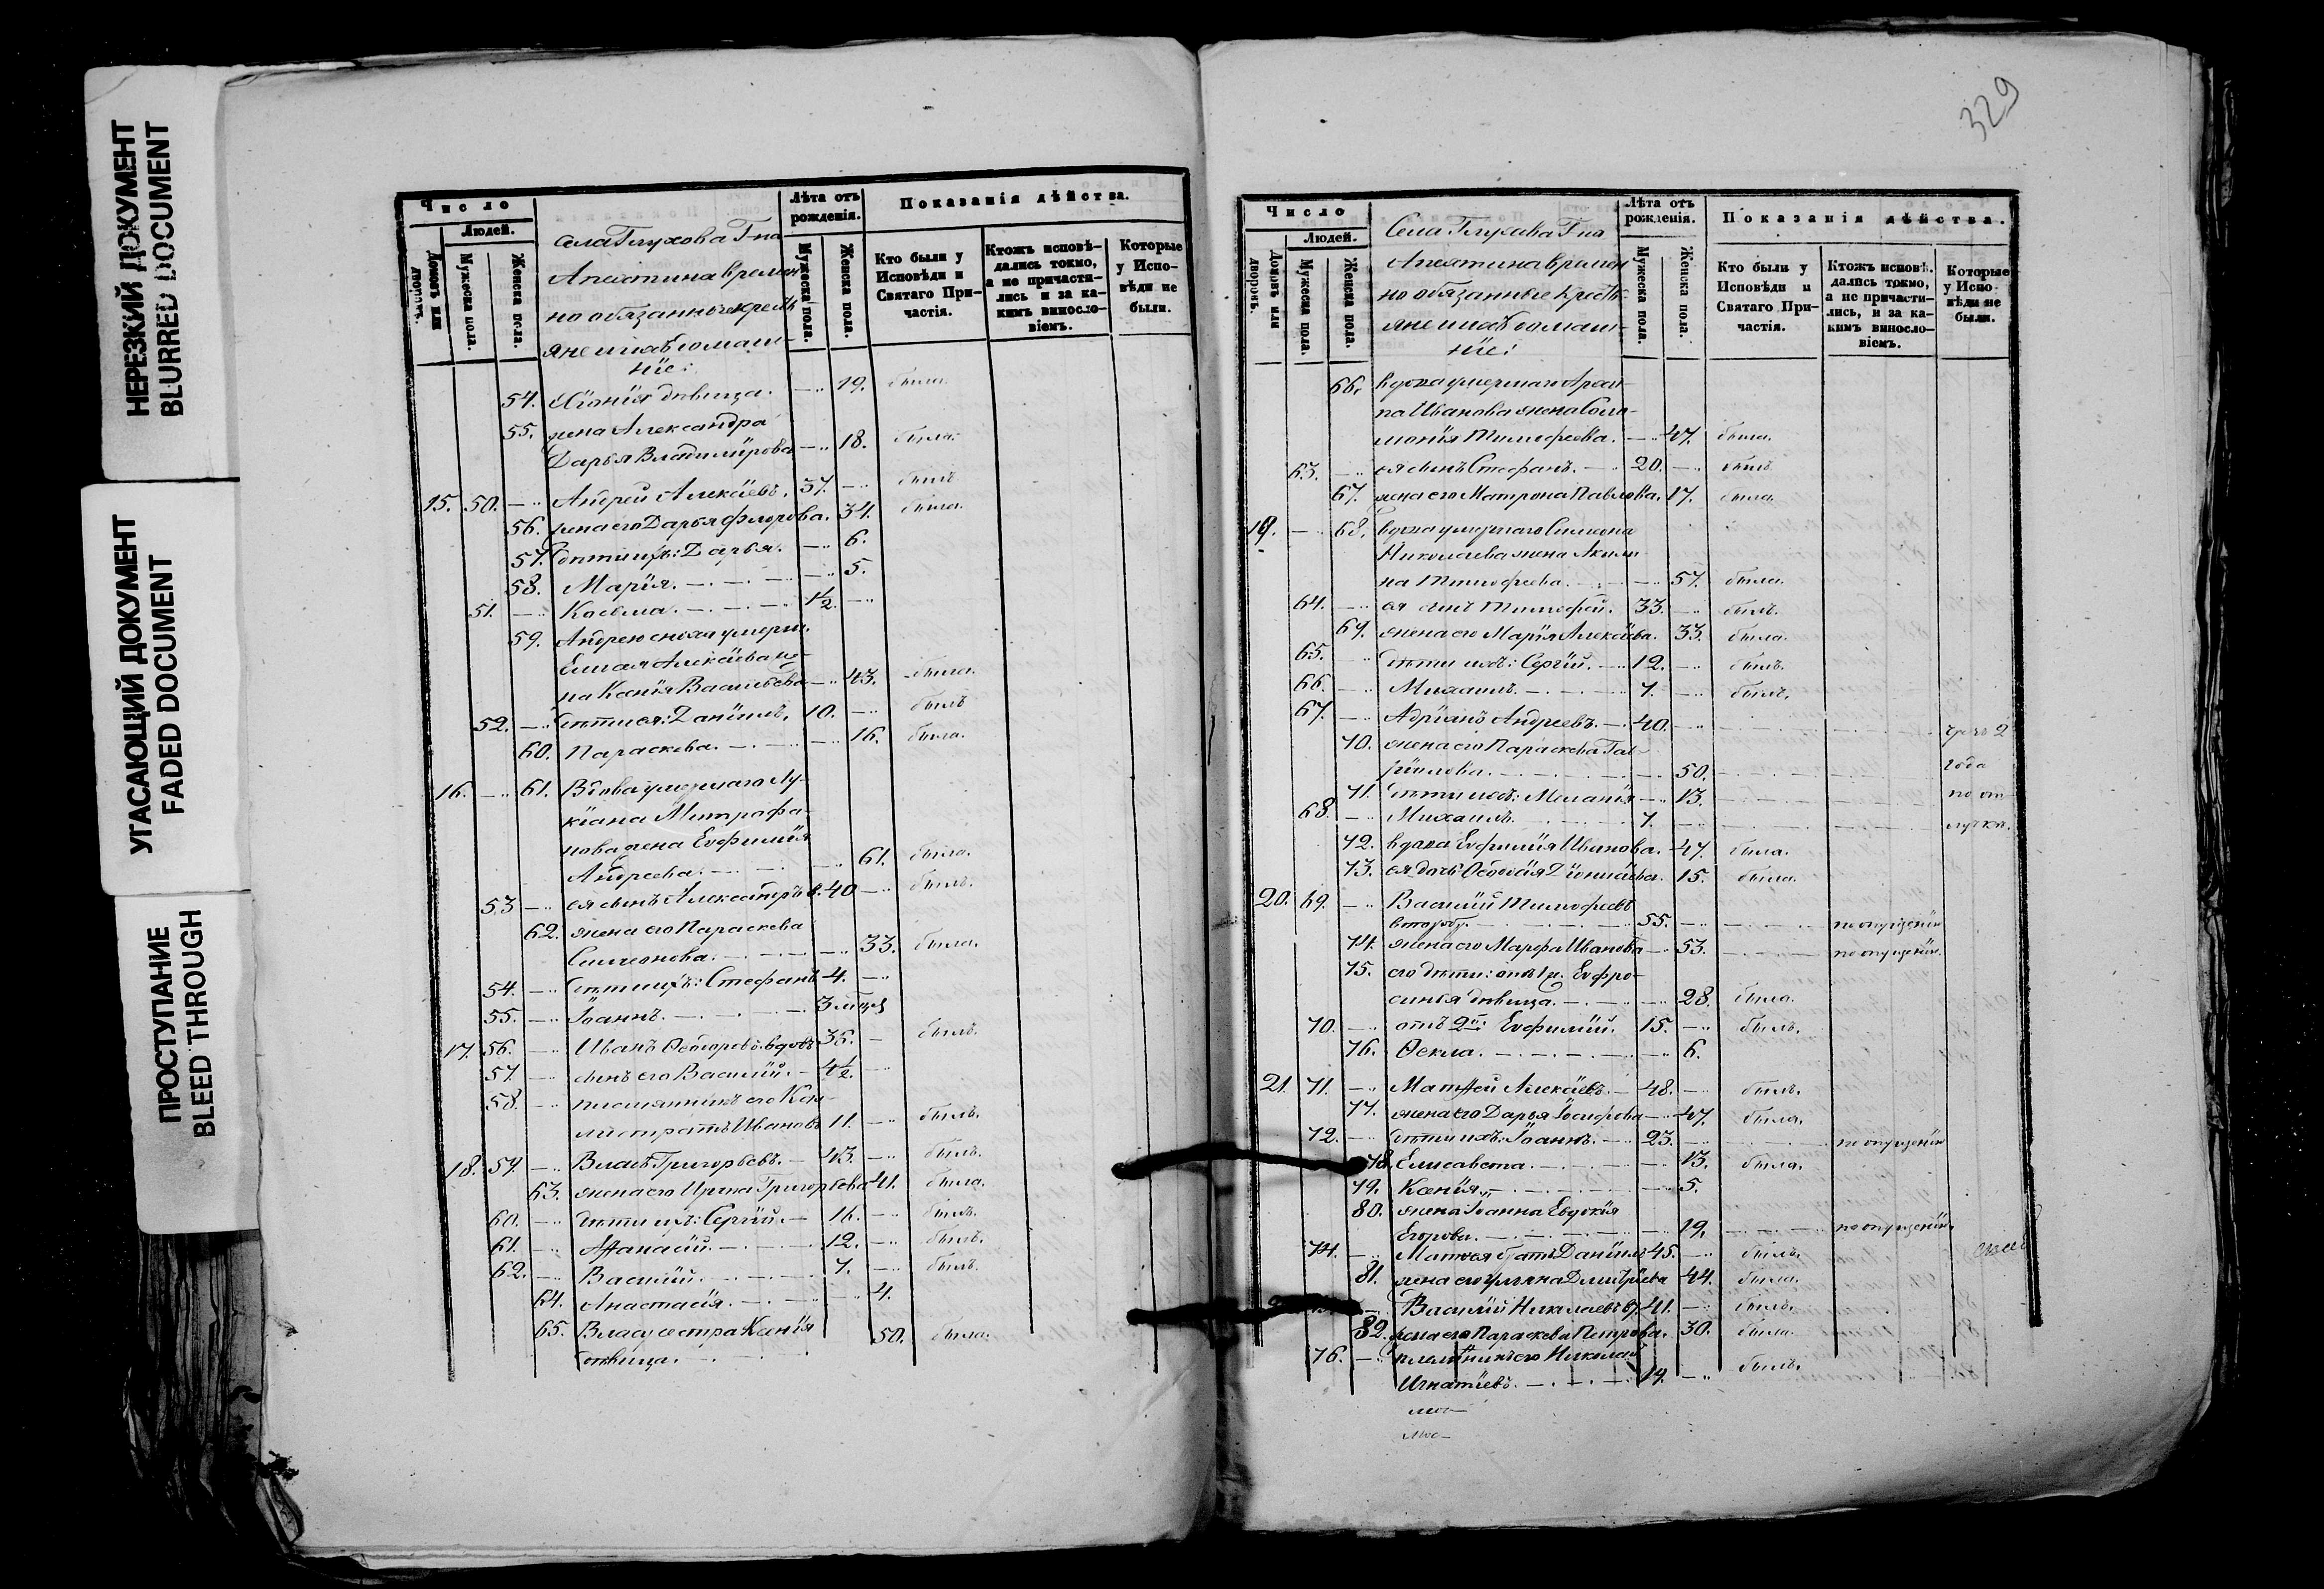 НЕРЕЗКИЙ ДОКУМЕНТ
BLURRED DOCUMENT
УГАСАЮЩИЙ ДОКУМЕНТ
FADED DOCUMENT
ПРОСТУПАНИЕ
BLEED THROUGH
Число
Людей.
Домовъ или дворовъ.
Мужеска пола.
Женска пола.
села Глухова Г-на
временно обязанные крестьяне и ихъ домашніе:
Лѣта отъ рожденія.
Мужеска пола.
Женска пола.
Показанія дѣйства.
Кто были у Исповѣди и Святаго Причастія.
Ктожъ исповѣдались токмо, а не причастились и за какимъ винословіемъ.
Которые у Исповѣди не были.
54. Хіонія дѣвица. 19. была.
55. жена Александра
Дарья Владимірова 18. была.
15. 50. Андрей Алексѣевъ. 37. былъ
56. жена его Дарья Флорова. 34. была.
57. дѣти ихъ: Дарья. 6.
58. Марія. 5.
51. Косьма. 1½.
59. Андрею сноха умерш.
Алексѣева же-
на Ксенія Васильева 43. была.
52. дѣти ея: Даніилъ. 10. былъ
60. Параскева. 16. была.
16. 61. Вдова умершаго Лу-
кіана Митрофа-
нова жена Евфимія
Андреева. 61. была.
53. ея сынъ Александръ 40 былъ.
62. жена его Параскева
Симеонова. 33. была.
54. дѣти ихъ: Стефанъ 4.
55. Іоаннъ. 3 мѣся
17. 56. Иванъ Ѳедоровъ вдовъ 35. былъ.
57. сынъ его Василій. 4½.
58. племянникъ его Кал-
листратъ Ивановъ 11. былъ.
18. 59. Власъ Григорьевъ. 43. былъ.
63. жена его Ирина Григорьева 41. была.
60. дѣти ихъ: Сергій. 16. былъ.
61. Аѳанасій. 12. былъ.
62. Василій. 7. былъ.
64. Анастасія. 4.
65. Власу сестра Ксенія
дѣвица. 50. была.
329
Число
Людей.
Домовъ или дворовъ.
Мужеска пола.
Женска пола.
Села Глухова Г-на
временно обязанные крестьяне и ихъ домашніе:
Лѣта отъ рожденія.
Мужеска пола.
Женска пола.
Показанія дѣйства.
Кто были у Исповѣди и Святаго Причастія.
Ктожъ исповѣдались токмо, а не причастились, и за какимъ винословіемъ.
Которые у Исповѣди не были.
66. вдова умершаго
Иванова жена Соло-
монія Тимофеева. 47. была.
63. ея сынъ Стефанъ. 20. былъ
67. жена его Матрона Павлова. 17. была.
19. 68. вдова умершаго Симеона
Николаева жена Акили-
на Тимофеева. 57. была.
64. ея сынъ Тимофей. 33. былъ.
69. жена его Марія Алексѣева. 33. была.
65. дѣти ихъ: Сергій. 12. былъ.
66. Михаилъ. 7. былъ.
67. Адріанъ Андреевъ. 40. 2
70. жена его Параскева Гав-
ріилова. 50. года
71. дѣти ихъ: Меланія 13. по от-
68. Михаилъ. 7. лучкѣ.
72. вдова Евфимія Иванова. 47. была.
73. ея дочь Ѳеодосія 15. была.
20. 69. Василій Тимофеевъ
55. по опущенію
74. жена его Марфа Иванова 53. по опущенію.
75. его дѣти: отъ 1й. Евфро-
синья дѣвица. 28. была.
70. отъ 2й: Евфимій. 15. былъ.
76. Ѳекла. 6.
21. 71. Матѳей Алексѣевъ. 48. былъ.
77. жена его Дарья Іосифова 47. была.
72. дѣти ихъ: Іоаннъ. 23. по опущенію
78. Елисавета. 13. была.
79. Ксенія. 5.
80. жена Іоанна Евдокія
Егорова. 19. по опущенію
74. Матѳея братъ Даніилъ 45. былъ.
81. жена его Ульяна Дмитріева 44. была.
Василій Николаевъ 41. былъ.
82. жена его Параскева Петрова. 30. была.
76. племянникъ его Николай
Игнатіевъ. 19. былъ.